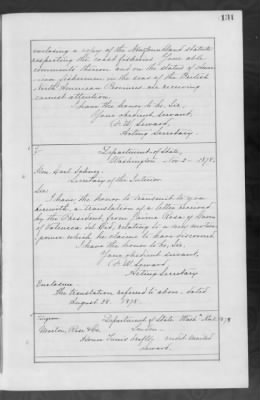 131
enclosing a copy of the Newfoundland statute
respecting the coast fisheries. Your able
comments thereon and on the status of Amer-
ican fishermen in the seas of the British
North American Provinces are receiving
earnest attention.
I have the honor to be, Sir,
Your obedient servant,
F. W. Seward,
Acting Secretary.
Department of State,
Washington Nov. 2 - 1878.
Hon. Carl Schurz,
Secretary of the Interior.
Sir:
I have the honor to transmit to you
herewith, a translation of a letter received
by the President, from Jaime Rosa y
of Valencia del Cid, relating to a new motive
power which he claims to have discovered.
I have the honor to be, Sir,
Your obedient servant,
F. W. Seward,
Acting Secretary
Enclosure.
The translation referred to above - dated
August 28. 1878.
Department of State Wash. 1878
Morton, Rose & Co. London.
Honor drafts, credit
Seward.